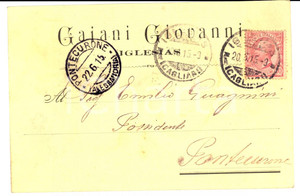 Gajani Giovanni
IGLESIAS
PONTECURONE
22.6.15
(ALESSANDRIA)
(CAGLIARI)
20.6.15
(CAGLIARI)
Al Sig. Emilio Guagnini
Possidente
Pontecurone